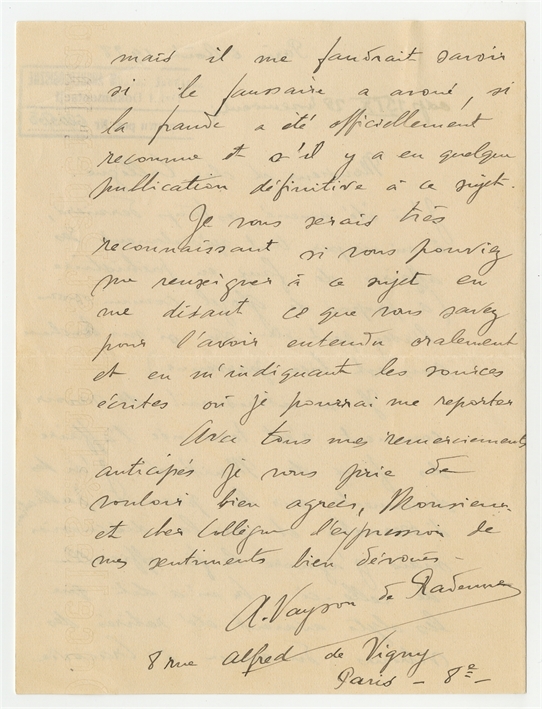 mais il me faudrait savoir
si le faussaire a avoué, si
la fraude a été officiellement
reconnue et s'il y a eu quelque
publication définitive à ce sujet.
Je vous serais très
reconnaissant si vous pouviez
me renseigner à ce sujet en
me disant ce que vous savez
pour l'avoir entendu oralement
et en m'indiquant les sources
écrites où je pourrai me reporter
Avec tous mes remerciements
anticipés je vous prie de
vouloir bien agréer, Monsieur
et cher Collègue l'expression de
mes sentiments bien dévoués -
A. Vayson de Pradenne
8 rue Alfred de Vigny
Paris - 8e -